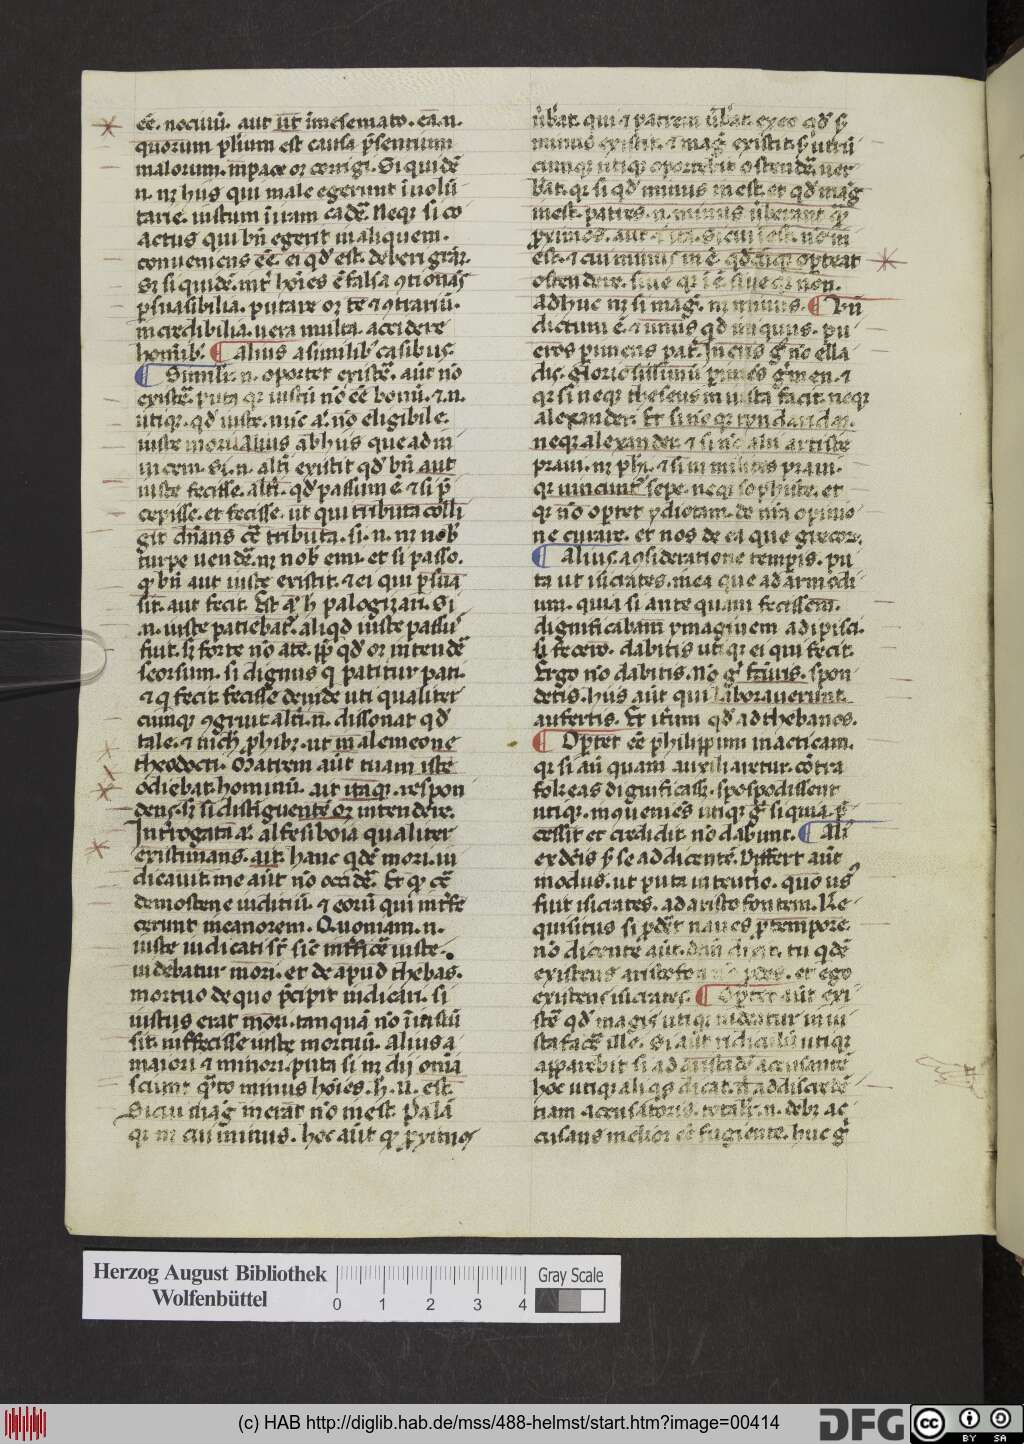 eē. nociuū. aut ut imesemato. cā. n.
quorum plīum est causa p̄sentium
malorum. inpace or corrigi. Si quidē
n. nr hus qui male egerunt īuolū
tarie. iustum ī iram cadē. Neqr si co
actus qui bn̄ egerit in aliquem.
conueniens eē. ei qd̕ est. deberi grār.
Si si quidē. int̄ hoīes ē falsa ꝯtionās
p̄suasibilia. putare or te ⁊ ꝯtrariū.
incredibilia. uera multa. accidere
homīb;. ¶ Alius a similib; casibus.
¶ Simili. n. oportet existē. aūt nō
existē. puta qr iustū nō eē bonū. ⁊ n.
utiqr. qd̕ iuste. nūc a. nō eligibile.
iuste mori. Alius ab hus que ad in
uicem. Si. n. altī existit qd̕ bn̄ aut
iuste fecisse. altī. qd̕ passum ē. ⁊ si p̄
cepisse. et fecisse. ut qui tributa colli
git
turpe uendē. nr nob̕ emi. et si passo.
qr bn̄ aut iuste existit. ⁊ ei qui p̄sua
sit. aut fecit. Est qr h palogizari. Si
.n. iuste patiebat̕. aliqd̕ iuste passu̕
fuit. Sr forte nō a te. pp̄ qd̕ or intendē
seorsum. si dignus q patitur pati.
⁊ q fecit fecisse deinde uti qualiter
cumqr ꝯgruit altī. n. dissonat qd̕
tale. ⁊ nich̕ phibr. ut in alemeone
theodocti. Matrem aūt tuam iste
odiebat hominū. ait itaqr. respon
dens. Sr si distiguente or intendere.
Int̕rogata a. alfesiboia qualiter
existimans. ait. hanc qdē mori. iu
dicauit. me aūt nō occidē. Et qr cē
demostene iudiciū. ⁊ eorū qui int̕fe
cerunt meanorem. Quoniam. n.
iuste iudicati sr̄. sic inffice iuste.
uidebatur mori. et de apud thebas.
mortuo de quo p̄cipit iudicari. si
iustus erat mori. tanquā nō īiustū
sit. inffecisse iuste mortuū. Alius a
maiori ⁊ minori. puta si in dij omīa
sciunt qrto minus hoīes. h. ū. est.
Si cui mag̕ inerat nō inest. Palā
qr nr cui minus. hoc aūt qr proximos
ūb̕at. qui ⁊ patrem ūb̕at.
minus existit. ⁊ mag̕ existit.
cumqr utiqr oportebit ostendē. uer
bat. qr si qd̕ minus inest. et qd̕ mag̕
inest. patres. n. minus ūberant qr
proximos. aut
est. ⁊ cui minus in ē. qd̕ oporteat
ostendere. siue qr ī ē siue qr non.
adhuc nr si mag̕. nr minus. ¶ Vn̄
dictum ē. ⁊ unus qd̕ iniquus. pu
eros pimens pat̕. In eius g̕ nō ella
die. Gloriosissimū
qr si neqr theseus iniusta facit. neqr
alexander. Et si neqr tyndaridar.
neqr alexander. ⁊ si nec alii artiste
praui. nr phī. ⁊ si ni milites praui.
qr uincunt̕ sepe. neqr sophiste. et
qr nō oportet ydiotam. de nr̄a opinio
ne curare. et nos de ea que grecor.
¶ Alius. a ꝯsideratione temp̄is. pu
ta ut isicrates. mea que ad armodi
um. quia si ante quam fecissem.
dignificabam ymaginem adipisci.
si fecero. dabitis utiqr ei qui fecit.
Ergo nō dabitis. Nō g̕ spon
detis. hus aūt qui laborauerunt.
aufertis. Et it̕um qd̕ ad thebanos.
¶ Oportet eē philippum in acticam.
qr si an̄ quam auxiliaretur. cōtra
folceas dignificass. spospodissent
utiqr. inꝯueniēs utiqr g̕ si quia. p̄
cessit et credidit nō dabunt. ¶ Ali
ex dcīs p̄ se ad dicentē. Differt aūt
modus. ut puta intentio. quo us̕
fuit isicrates. ad aristofontem. Re
quisitus si p̄dēt naues p̄ tempore.
nō dicente aūt. dein̄ dixit. tu qdē
existens aristofon. et ego
existens isicrates. ¶ Oportet aūt exi
stē qd̕ magis utiqr uideatur iniu
sta facē ille. Si aūt ridiculū utiqr
apparebit si ad
hoc utiqr aliqs dicat. n̄ ad discredē
tiam accusatoris. totalr. n. debr ac
cusans melior eē fugiente. huc g̕
Herzog August Bibliothek
Wolfenbüttel
0 1 2 3 4
Gray Scale
(c) HAB http://diglib.hab.de/mss/488-helmst/start.htm?image=00414
DFG
cc BY SA